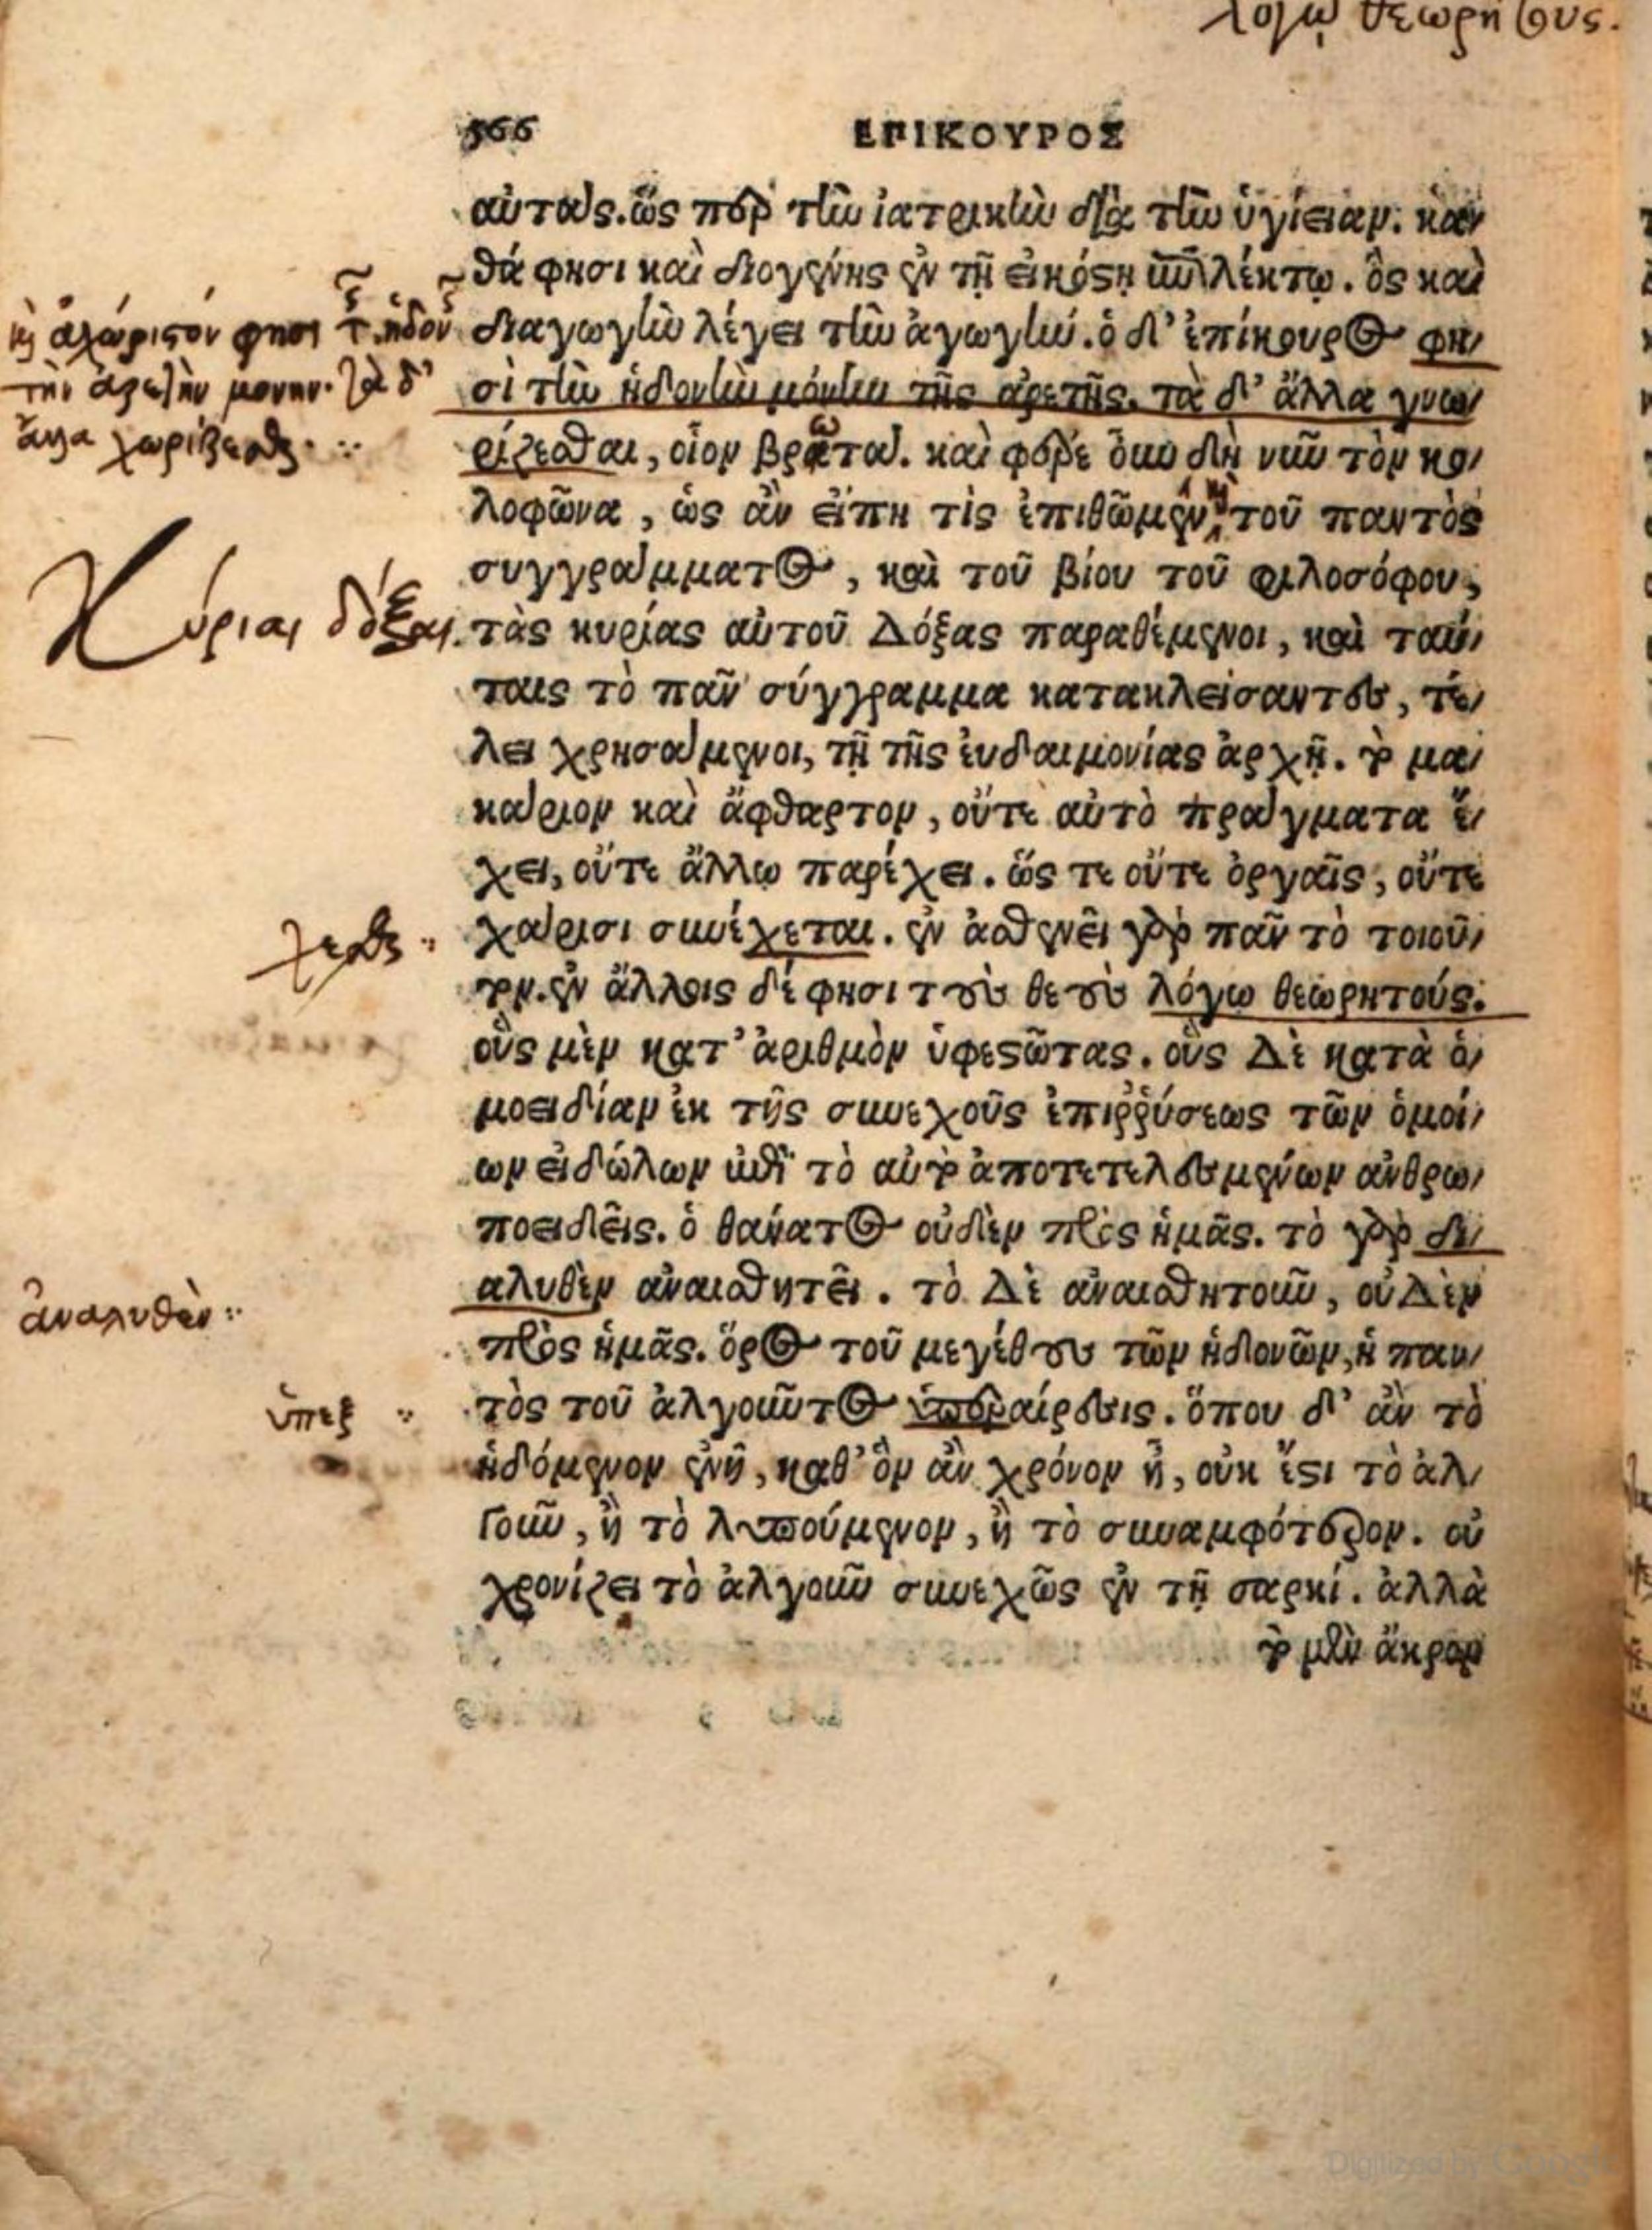 λόγῳ θεωρητους.
566 ΕΠΙΚΟΥΡΟΣ
αὐτάς. ὥς περ τὴν ἰατρικὴν διὰ τὴν ὑγίειαν. κα
θά φησι καὶ διογένης ἐν τῇ εἰκόστῃ ἐπιλέκτῳ. ὃς καὶ
διαγωγὴν λέγει τὴν ἀγωγήν. ὁ δ' ἐπίκουρος φη
σὶ τὴν ἡδονὴν μόνην τῆς ἀρετῆς. τὰ δ' ἄλλα γνω
ρίζεσθαι, οἷον βρατά. καὶ φέρε ὅπου δὴ νῦν τὸν κο
λοφῶνα, ὡς ἂν εἴπῃ τὶς ἐπιθῶμεν τοῦ παντὸς
συγγράμματος, καὶ τοῦ βίου τοῦ φιλοσόφου,
τὰς κυρίας αὐτοῦ Δόξας παραθέμενοι, καὶ ταύ
ταις τὸ πᾶν σύγγραμμα κατακλείσαντες, τέ
λει χρησάμενοι, τῇ τῆς ἐυδαιμονίας ἀρχῇ. τὸ μα
κάριον καὶ ἄφθαρτον, οὔτε αὐτὸ πράγματα ἔ
χει, οὔτε ἄλλῳ παρέχει. ὥς τε οὔτε ὀργαῖς, οὔτε
χάρισι συνέχεται. ἐν ἀσθενεῖ γὰρ πᾶν τὸ τοιοῦ
τον. ἐν ἄλλοις δέ φησι τοὺς θεοὺς λόγῳ θεωρητούς.
οὓς μὲν κατ' ἀριθμὸν ὑφεστῶτας. οὓς Δὲ κατὰ ὁ
μοειδίαν ἐκ τῆς συνεχοῦς ἐπιῤῥύσεως τῶν ὁμοί
ων εἰδώλων ἐπὶ τὸ αὐτὸ ἀποτετελεσμένων ἀνθρω
ποειδεῖς. ὁ θάνατος οὐδὲν πρὸς ἡμᾶς. τὸ γὰρ δι
αλυθὲν ἀναισθητεῖ. τὸ Δὲ ἀναισθητοῦν, οὐΔὲν
πρὸς ἡμᾶς. ὅρος τοῦ μεγέθους τῶν ἡδονῶν, ἡ παν
τὸς τοῦ ἀλγοῦντος ὑπεραίρεσις. ὅπου δ' ἂν τὸ
ἡδόμενον ἐνῇ, καθ' ὃν ἂν χρόνον ᾖ, οὐκ ἔστι τὸ ἀλ
γοῦν, ἢ τὸ λυπούμενον, ἢ τὸ συναμφότερον. οὐ
χρονίζει τὸ ἀλγοῦν συνεχῶς ἐν τῇ σαρκί. ἀλλὰ
τὸ μὲν ἄκρον
κỳ ἀχώριστόν φησι τ̃ς ἡδονῆς
τὴν ἀρετὴν μονην. τὰ δ'
ἄλλα χωρίζεσθαι.
Κύριαι δόξαι.
χεσθαι
ἀναλυθὲν
ὑπεξ
Digitized by Google